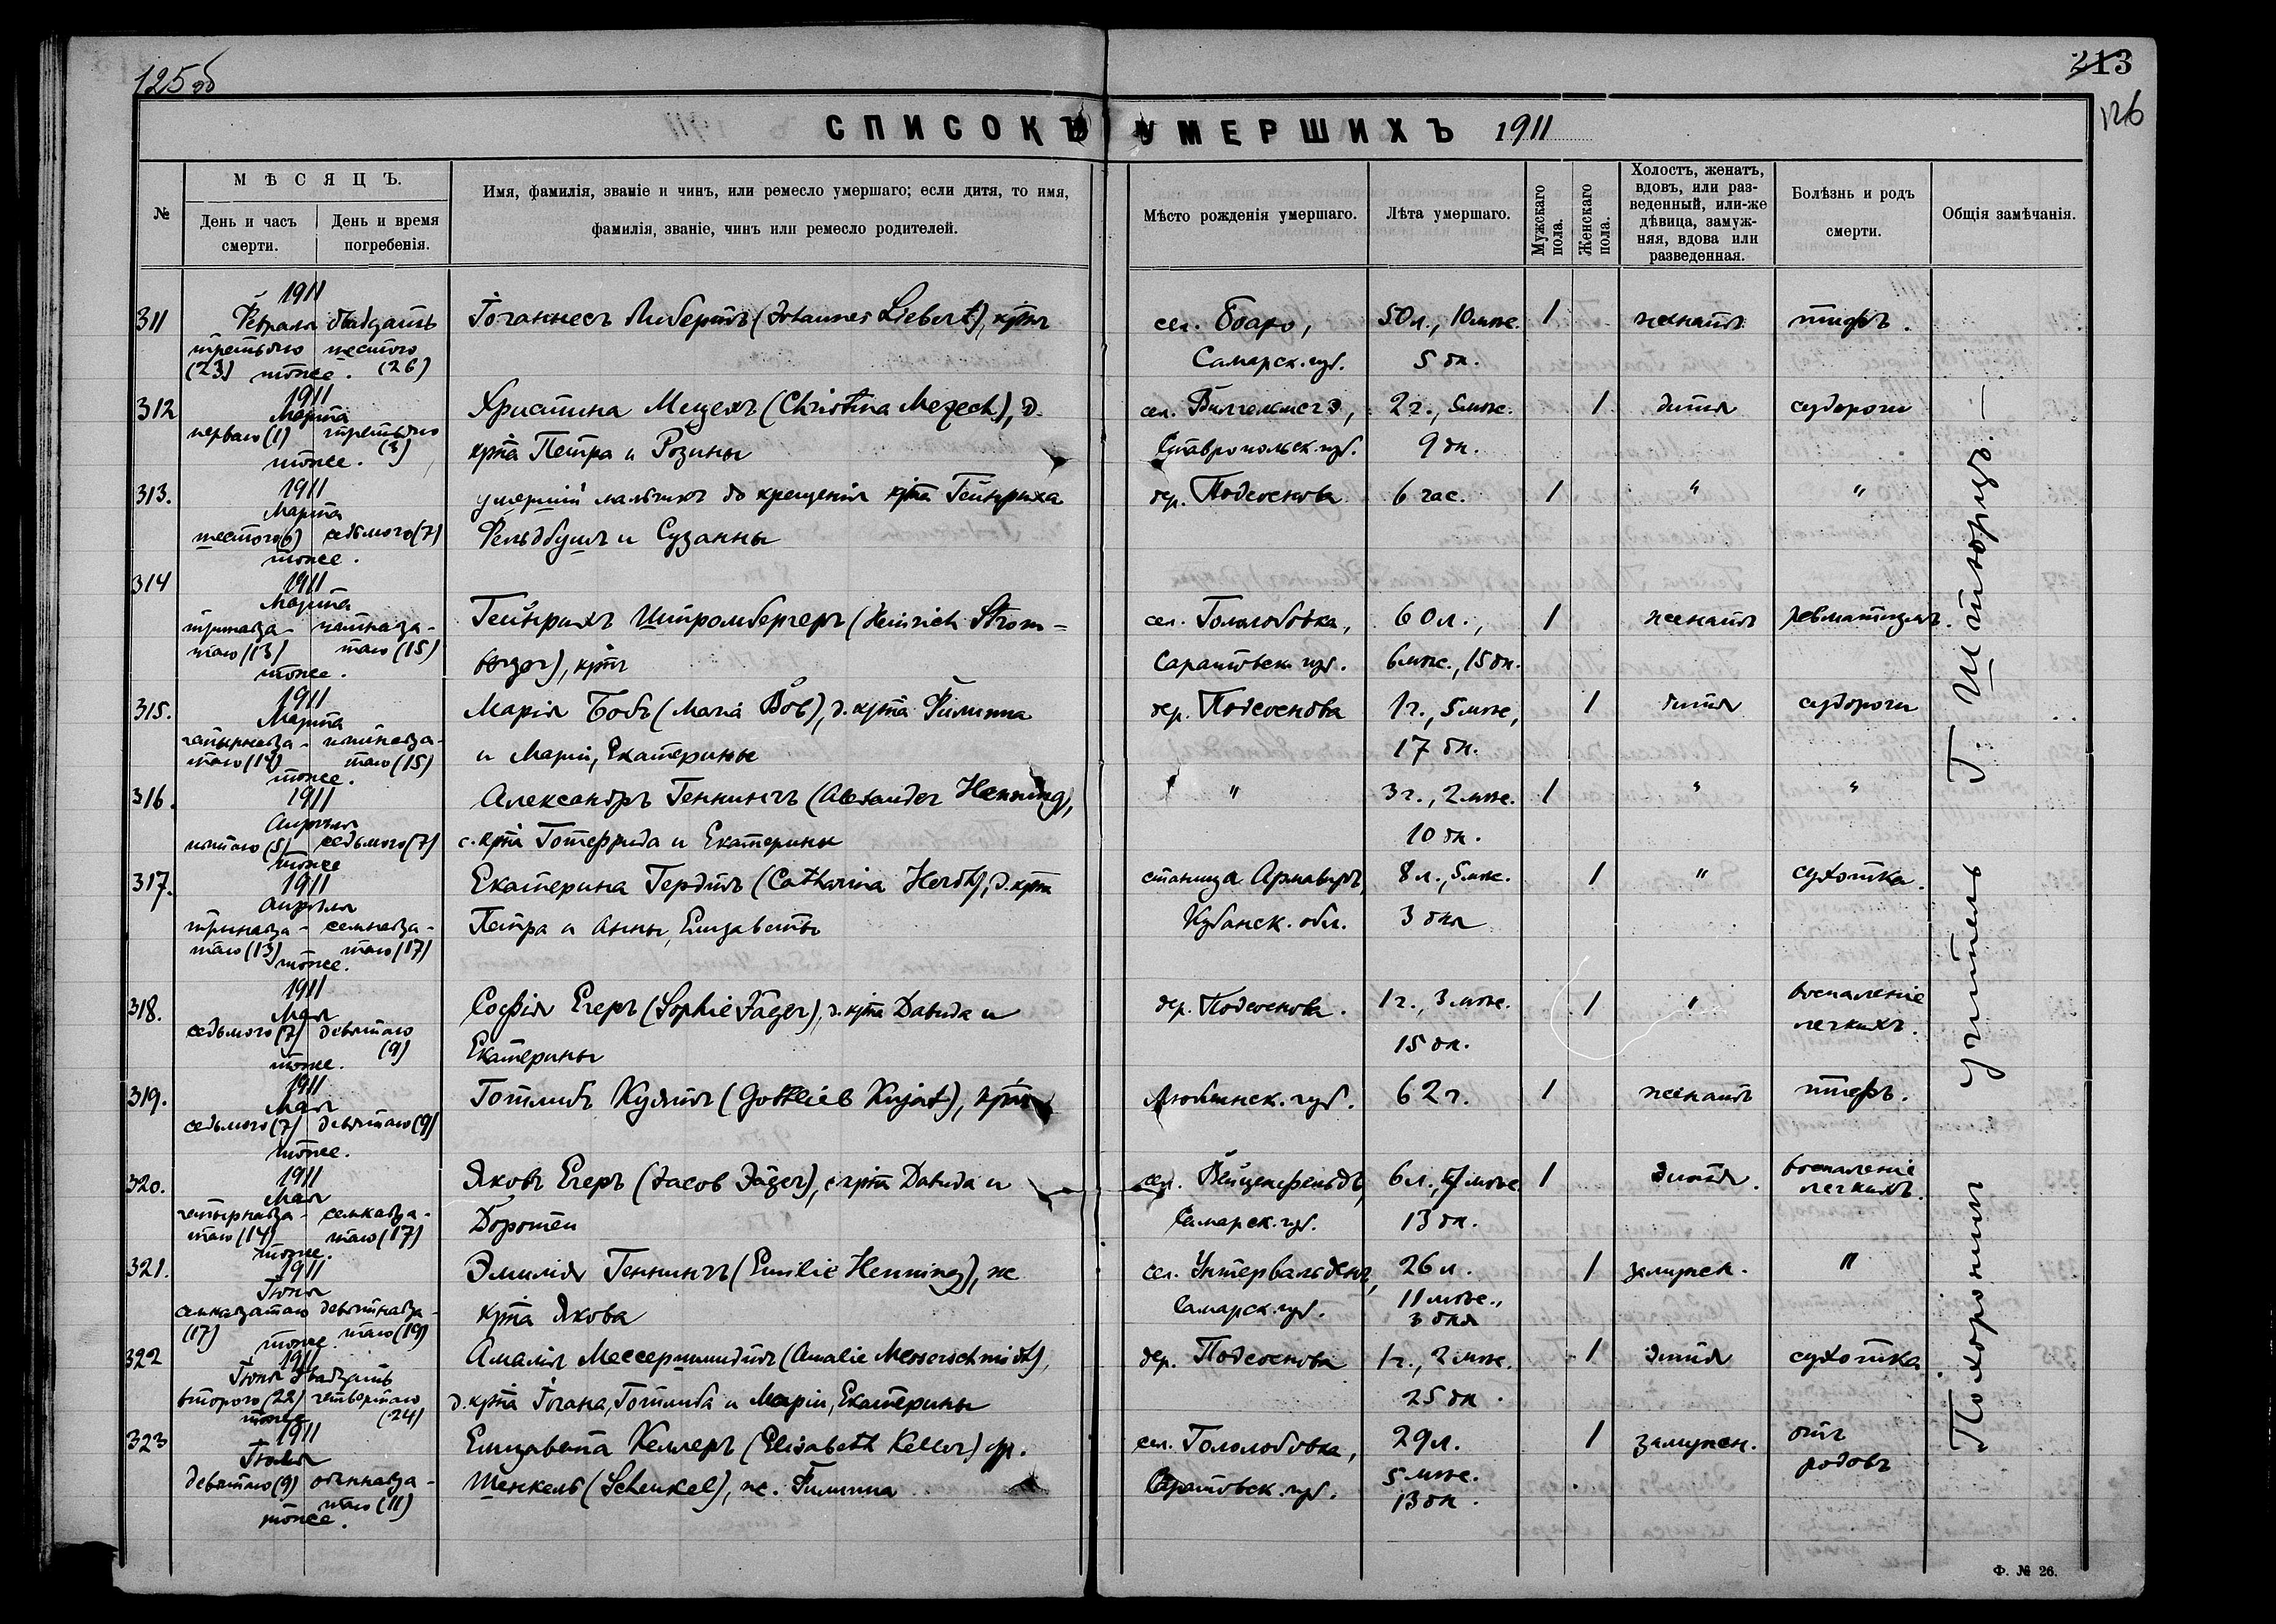 125 об
213
126
СПИСОКЪ УМЕРШИХЪ 1911
№
МѢСЯЦЪ.
День и часъ смерти.
День и время погребенія.
Имя, фамилія, званіе и чинъ, или ремесло умершаго; если дитя, то имя,
фамилія, званіе, чинъ или ремесло родителей.
Мѣсто рожденія умершаго.
Лѣта умершаго.
Мужскаго пола.
Женскаго пола.
Холостъ, женатъ,
вдовъ, или раз-
веденный, или-же
дѣвица, замуж-
няя, вдова или
разведенная.
Болѣзнь и родъ
смерти.
Общія замѣчанія.
1911
311 Февраля двадцать Іоганнесъ Либертъ (Johannes Liebert), крт. сел. Боаро, 50 л., 10 мѣс. 1 женатъ тифъ.
третьяго шестого Самарск. губ. 5 дн.
(23) тоже. (26)
1911
312 Марта Христина Мецехъ (Christina Mezech), д. сел. 2 г., 5 мѣс. 1 дитя судороги
перваго (1) третьяго крта Петра и Розины Ставропольск. губ. 9 дн.
тоже. (3)
1911
313. Марта умершій мальчикъ до крещенія крта Гейнриха дер. Подсоснова 6 час. 1 " "
шестого (6) седьмого (7) Фельдбушъ и Сузанны
тоже.
1911
314 Марта
тринадца- пятнадца- Гейнрихъ Штромбергеръ (Heinrich Strom- сел. Гололобовка, 60 л., 1 женатъ ревматизмъ.
таго (13) таго (15) berger), крт. Саратовск. губ. 6 мѣс., 15 дн.
тоже.
1911
315. Марта Марія Бобъ (Maria Bob), д. крта Филиппа дер. Подсоснова 1 г., 5 мѣс., 1 дитя судороги
четырнадца- пятнадца- и Маріи, Екатерины 17 дн.
таго (14) таго (15)
тоже.
1911
316. Апрѣля Александръ Геннингъ (Alexander Henning), " 3 г., 2 мѣс. 1 " "
пятаго (5) седьмого (7) с. крта Готтфрида и Екатерины 10 дн.
тоже
1911
317. Апрѣля Екатерина Гердтъ (Catharina Herdt), д. крта станица Армавиръ, 8 л., 5 мѣс. 1 " сухотка.
тринадца- семнадца- Петра и Анны, Елизаветы Кубанск. обл. 3 дня
таго (13) таго (17)
тоже.
1911
318. Мая Софія Егеръ (Sophie Jäger), д. крта Давида и дер. Подсоснова. 1 г., 3 мѣс. 1 " воспаленіе
седьмого (7) девятаго Екатерины 15 дн. легкихъ.
(9)
тоже.
1911
319. Мая Готлибъ Куятъ (Gottlieb Kujat), крт. Люблинск. губ. 62 г. 1 женатъ тифъ.
седьмого (7) девятаго (9)
тоже.
1911
320. Мая Яковъ Егеръ (Jacob Jäger), с. крта Давида и сел. Вейценфельдъ, 6 л., 7 мѣс. 1 дитя. воспаленіе
четырнадца- семнадца- Доротеи Самарск. губ. 13 дн. легкихъ.
таго (14) таго (17)
тоже.
1911
321. Іюня Эмилія Геннингъ (Emilie Henning), ж. сел. Унтервальденъ, 26 л. 1 замужн. "
семнадцатаго девятнадца- крта Якова Самарск. губ. 11 мѣс.,
(17) таго (19) 3 дня
тоже
1911
322 Іюня двадцать Амалія Мессершмидтъ (Amalie Messerschmidt), дер. Подсоснова 1 г., 2 мѣс. 1 дитя сухотка
второго (22) четвертаго д. крта Іогана, Готлиба и Маріи, Екатерины 25 дн.
тоже (24)
1911
323 Іюля Елизавета Келлеръ (Elisabeth Keller) ур. сел. Гололобовка, 29 л. 1 замужн. отъ
девятаго (9) одиннадца- Шенкель (Schenkel), ж. Филиппа Саратовск. губ. 5 мѣс. родовъ
таго (11) 13 дн.
тоже.
Похоронилъ учитель Г. Штюрцъ. —
Ф. № 26.